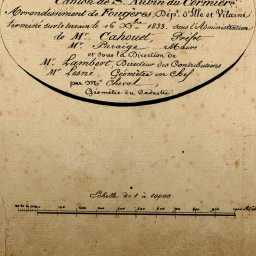 Canton de St. Aubin du Cormier
Arrondissement de Fougères Dépt. d'Ille et Vilaine
Terminé sur le terrain le 16 Xbre 1833, sous l'Administration
de Mr. Cahouet, Préfet
Mr. Maire
et sous la Direction de
Mr. Lambert, Directeur des Contributions
Mr. Lesné Géomètre en Chef
par Mr. Cheval
Géomètre du Cadastre
Echelle de 1 à 10000